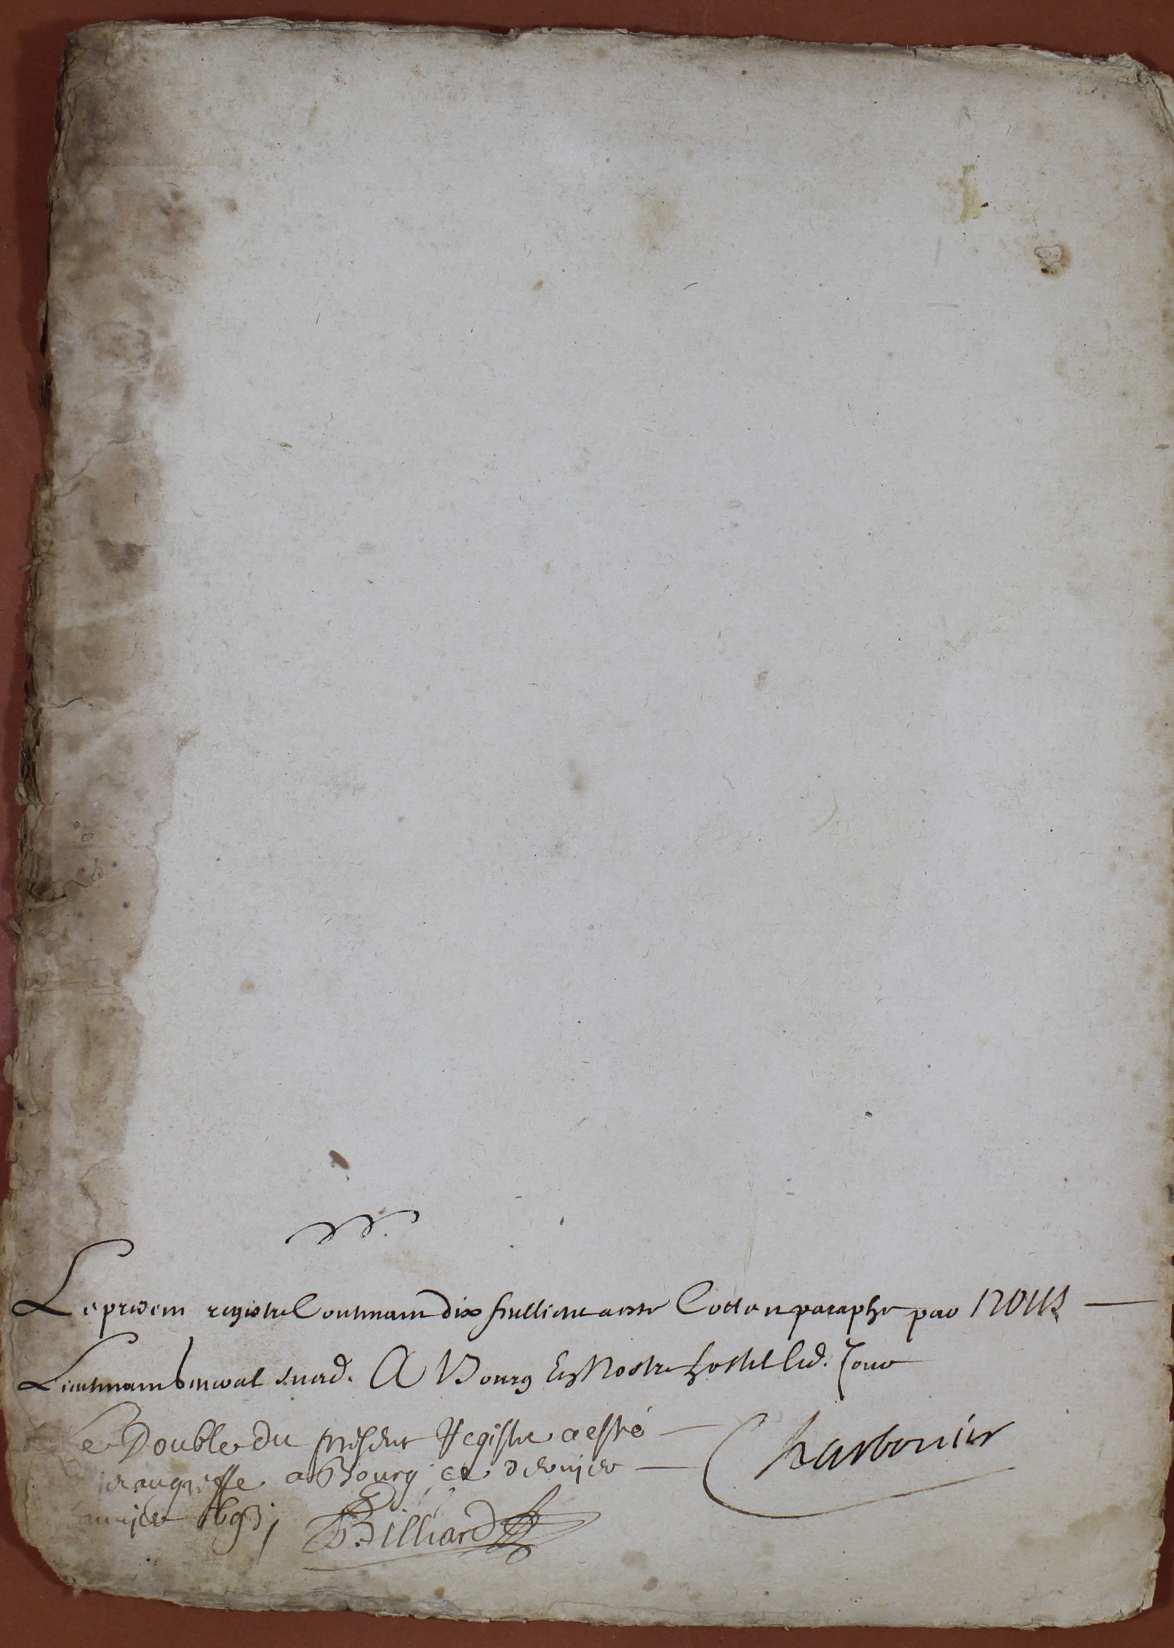 Le present registre Contenant dix feullietz a esté Cotté et paraphé par nous
Lieutenant general susd. A Bourg En Nostre hostel led. Jour
Charbonier
Le Double du present Registre a esté
au greffe a Bourg ce dernier
janvier 1693
Billiard